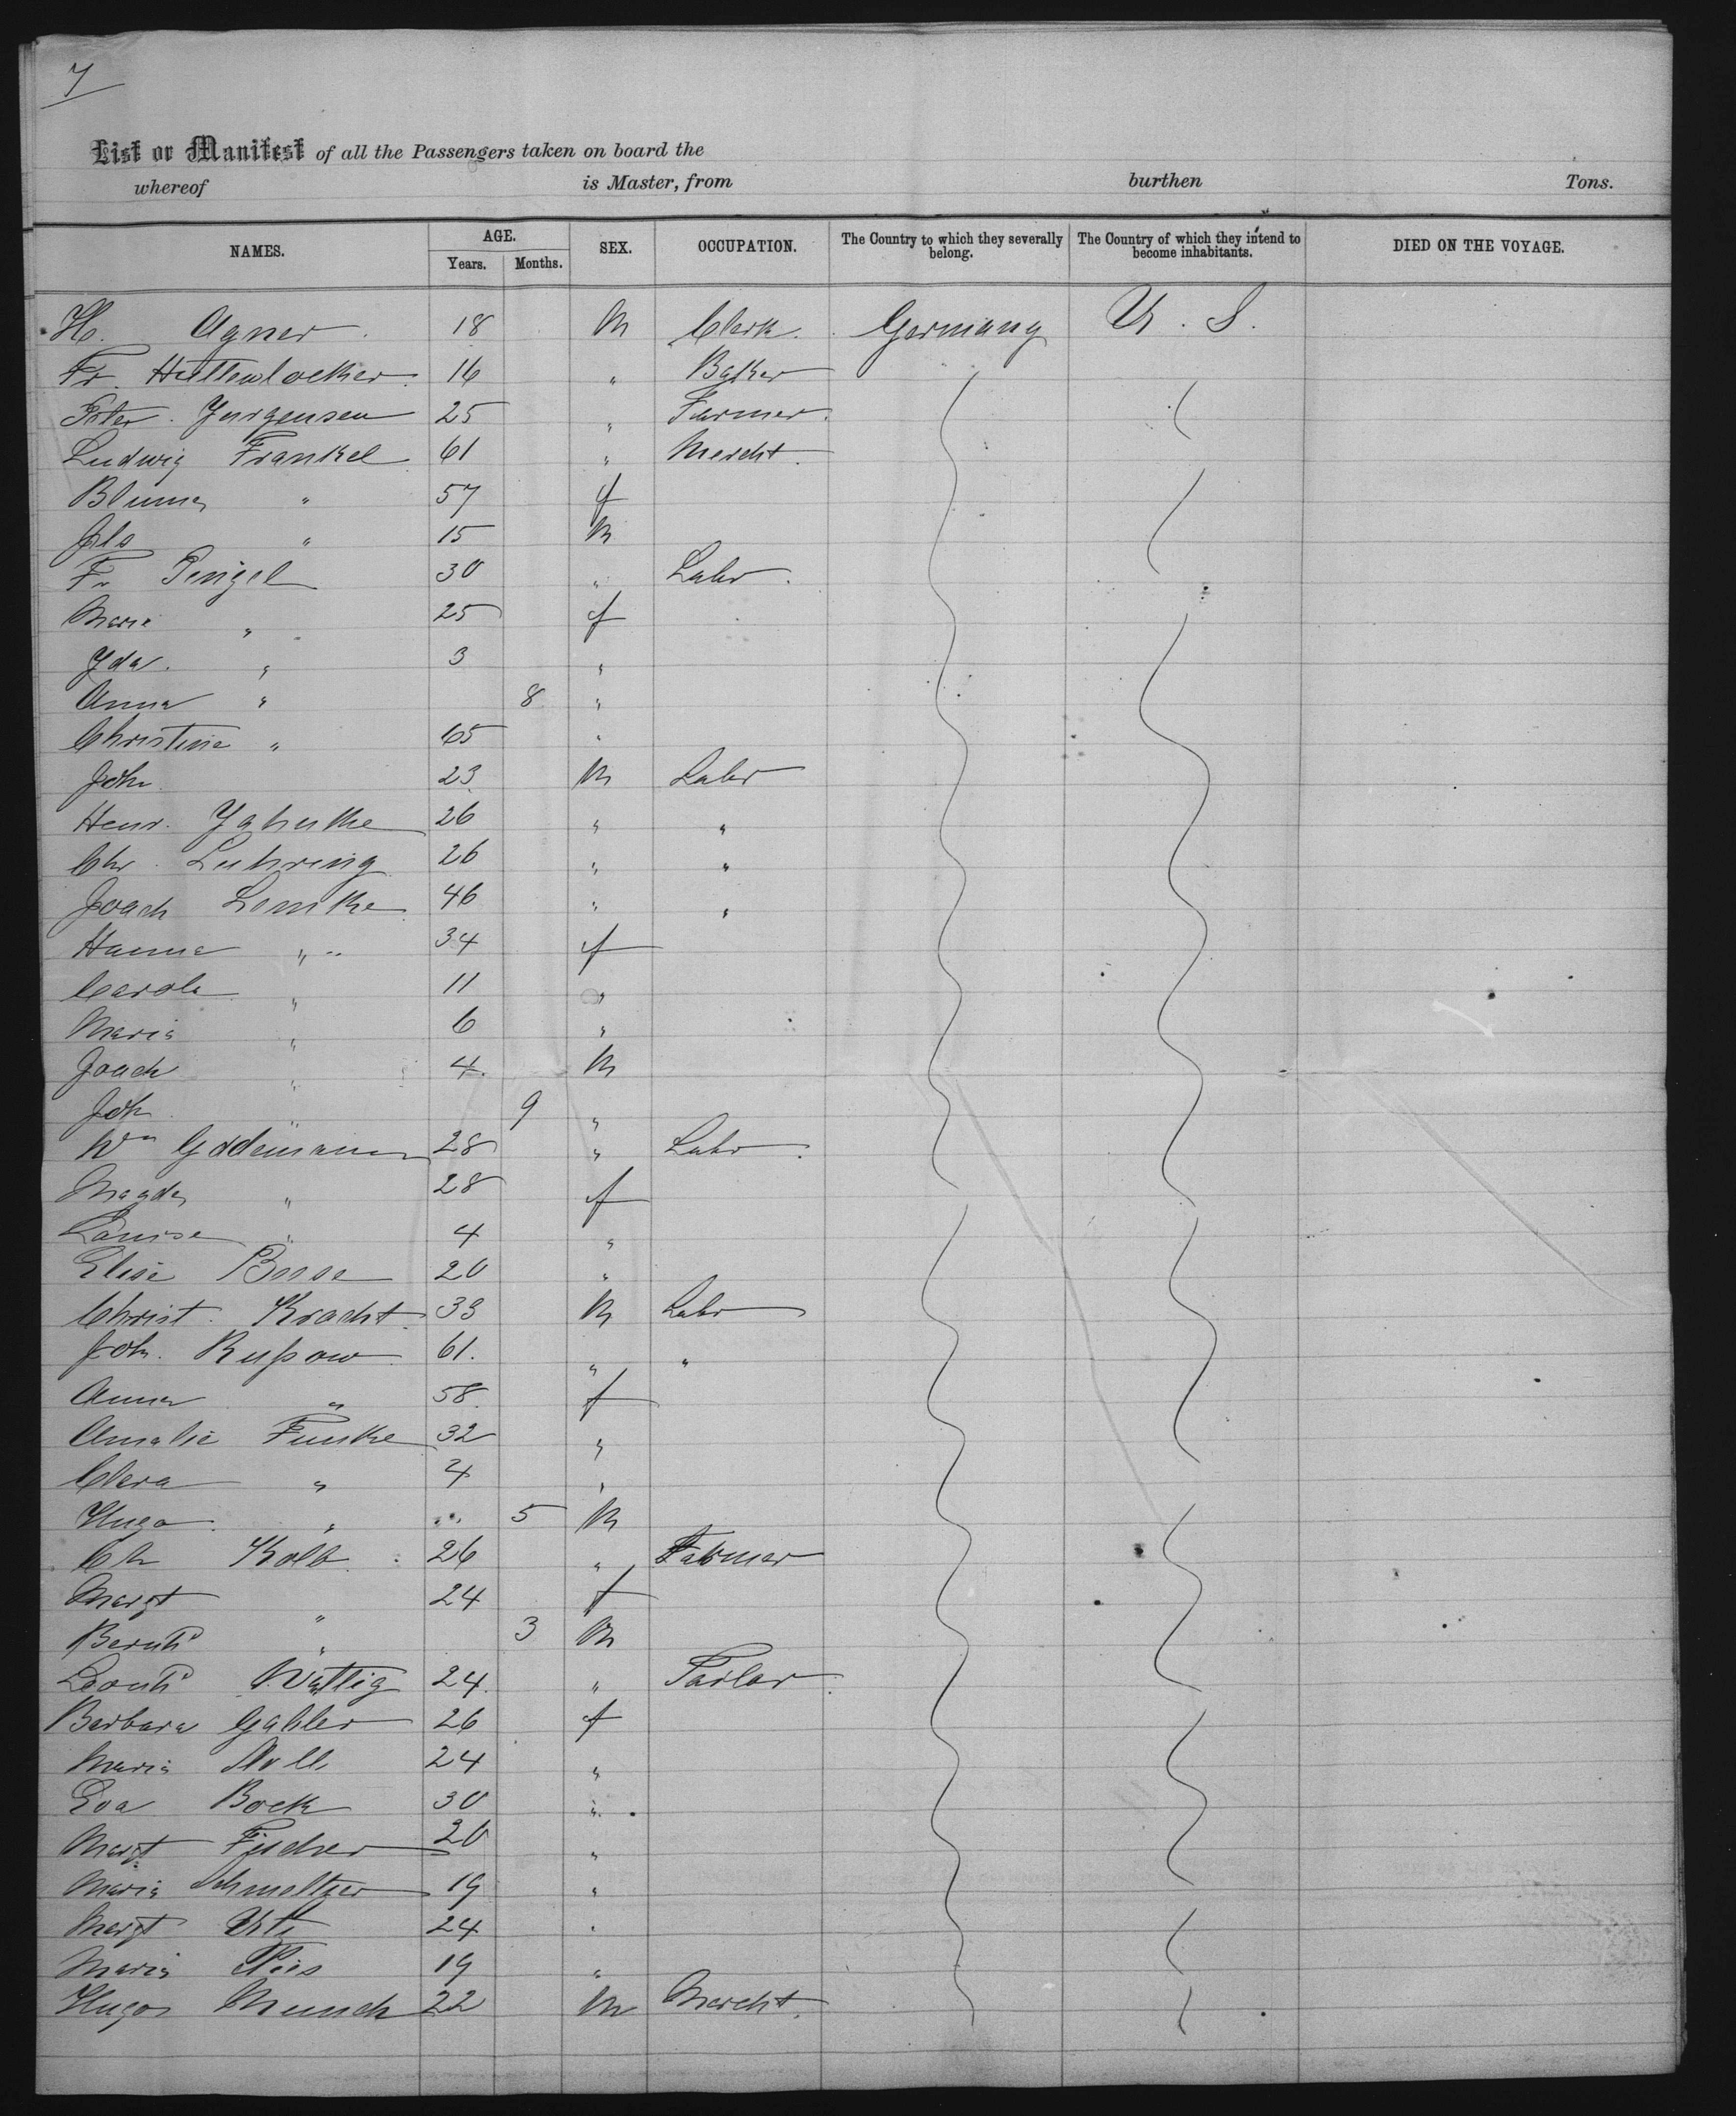 7
List or Manifest of all the Passengers taken on board the
whereof is Master, from burthen Tons.
NAMES. AGE. SEX. OCCUPATION. The Country to which they severally belong. The Country of which they intend to become inhabitants. DIED ON THE VOYAGE.
Years. Months.
H. Agner 18 M Clerk. Germany U. S.
Fr. Huttenlocker 16 " Baker
Peter Jurgensen 25 " Farmer
Ludwig Frankel 61 " Mercht.
Bluma " 57 f
" 15 M
Fr 30 " Labr.
Marie " 25 f
Yda " 3 "
Anna " 8 "
Christine " 65 "
Joh. 23 M Labr
Henr. 26 " "
Chr. Luhring 26 " "
Joach Lemke 46 " "
Hanna " 34 f
Carola " 11 "
Maria " 6 "
Joach " 4 M
Joh " 9 "
Wm Godemann 28 " Labr.
Magda " 28 f
Louise " 4 "
Elise 20 "
Christ. Kracht 33 M Labr
Joh. Rußow 61. " "
Anna " 58. f
Amalie Funke 32 "
Clara " 4 "
Hugo " 5 M
Ch Kolb 26 " Farmer
Margt " 24 f
Bernhd " 3 M
Leonhd Wattig 24. " Tailor
Barbara Gahler 26 f
Maria 24 "
Eva Bock 30 "
Margt Fischer 20 "
Maria Schmeltzer 19 "
Margt 24 "
Maria 19 "
Hugo Munch 22 M Mercht.